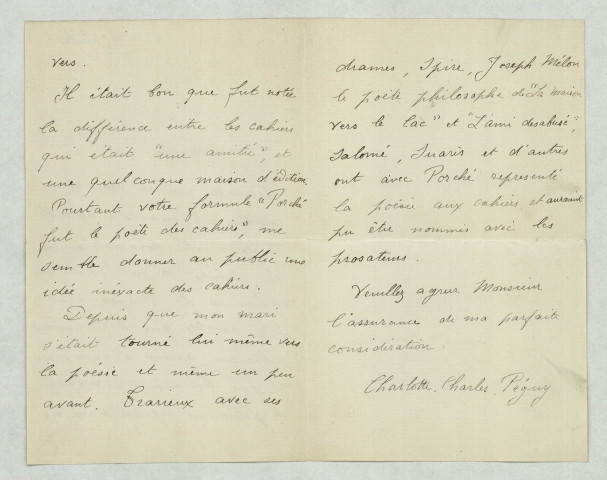 vers.
Il était bon que fut notée
la différence entre les cahiers
qui était "une amitié", et
une quelconque maison d'édition
Pourtant votre formule "Porché
fut le poète des cahiers", me
semble donner au public une
idée inéxacte des cahiers.
Depuis que mon mari
s'était tourné lui même vers
la poésie et même un peu
avant. Trarieux avec ses
drames, Spire, Joseph Mélon
le poète philosophe de "La maison
vers le lac" et "L'ami desabusé",
Salomé, Suarès et d'autres
ont avec Porché representé
la poésie aux cahiers et auraient
pu être nommés avec les
prosateurs.
Veuillez agréer Monsieur
l'assurance de ma parfaite
considération.
Charlotte. Charles. Péguy